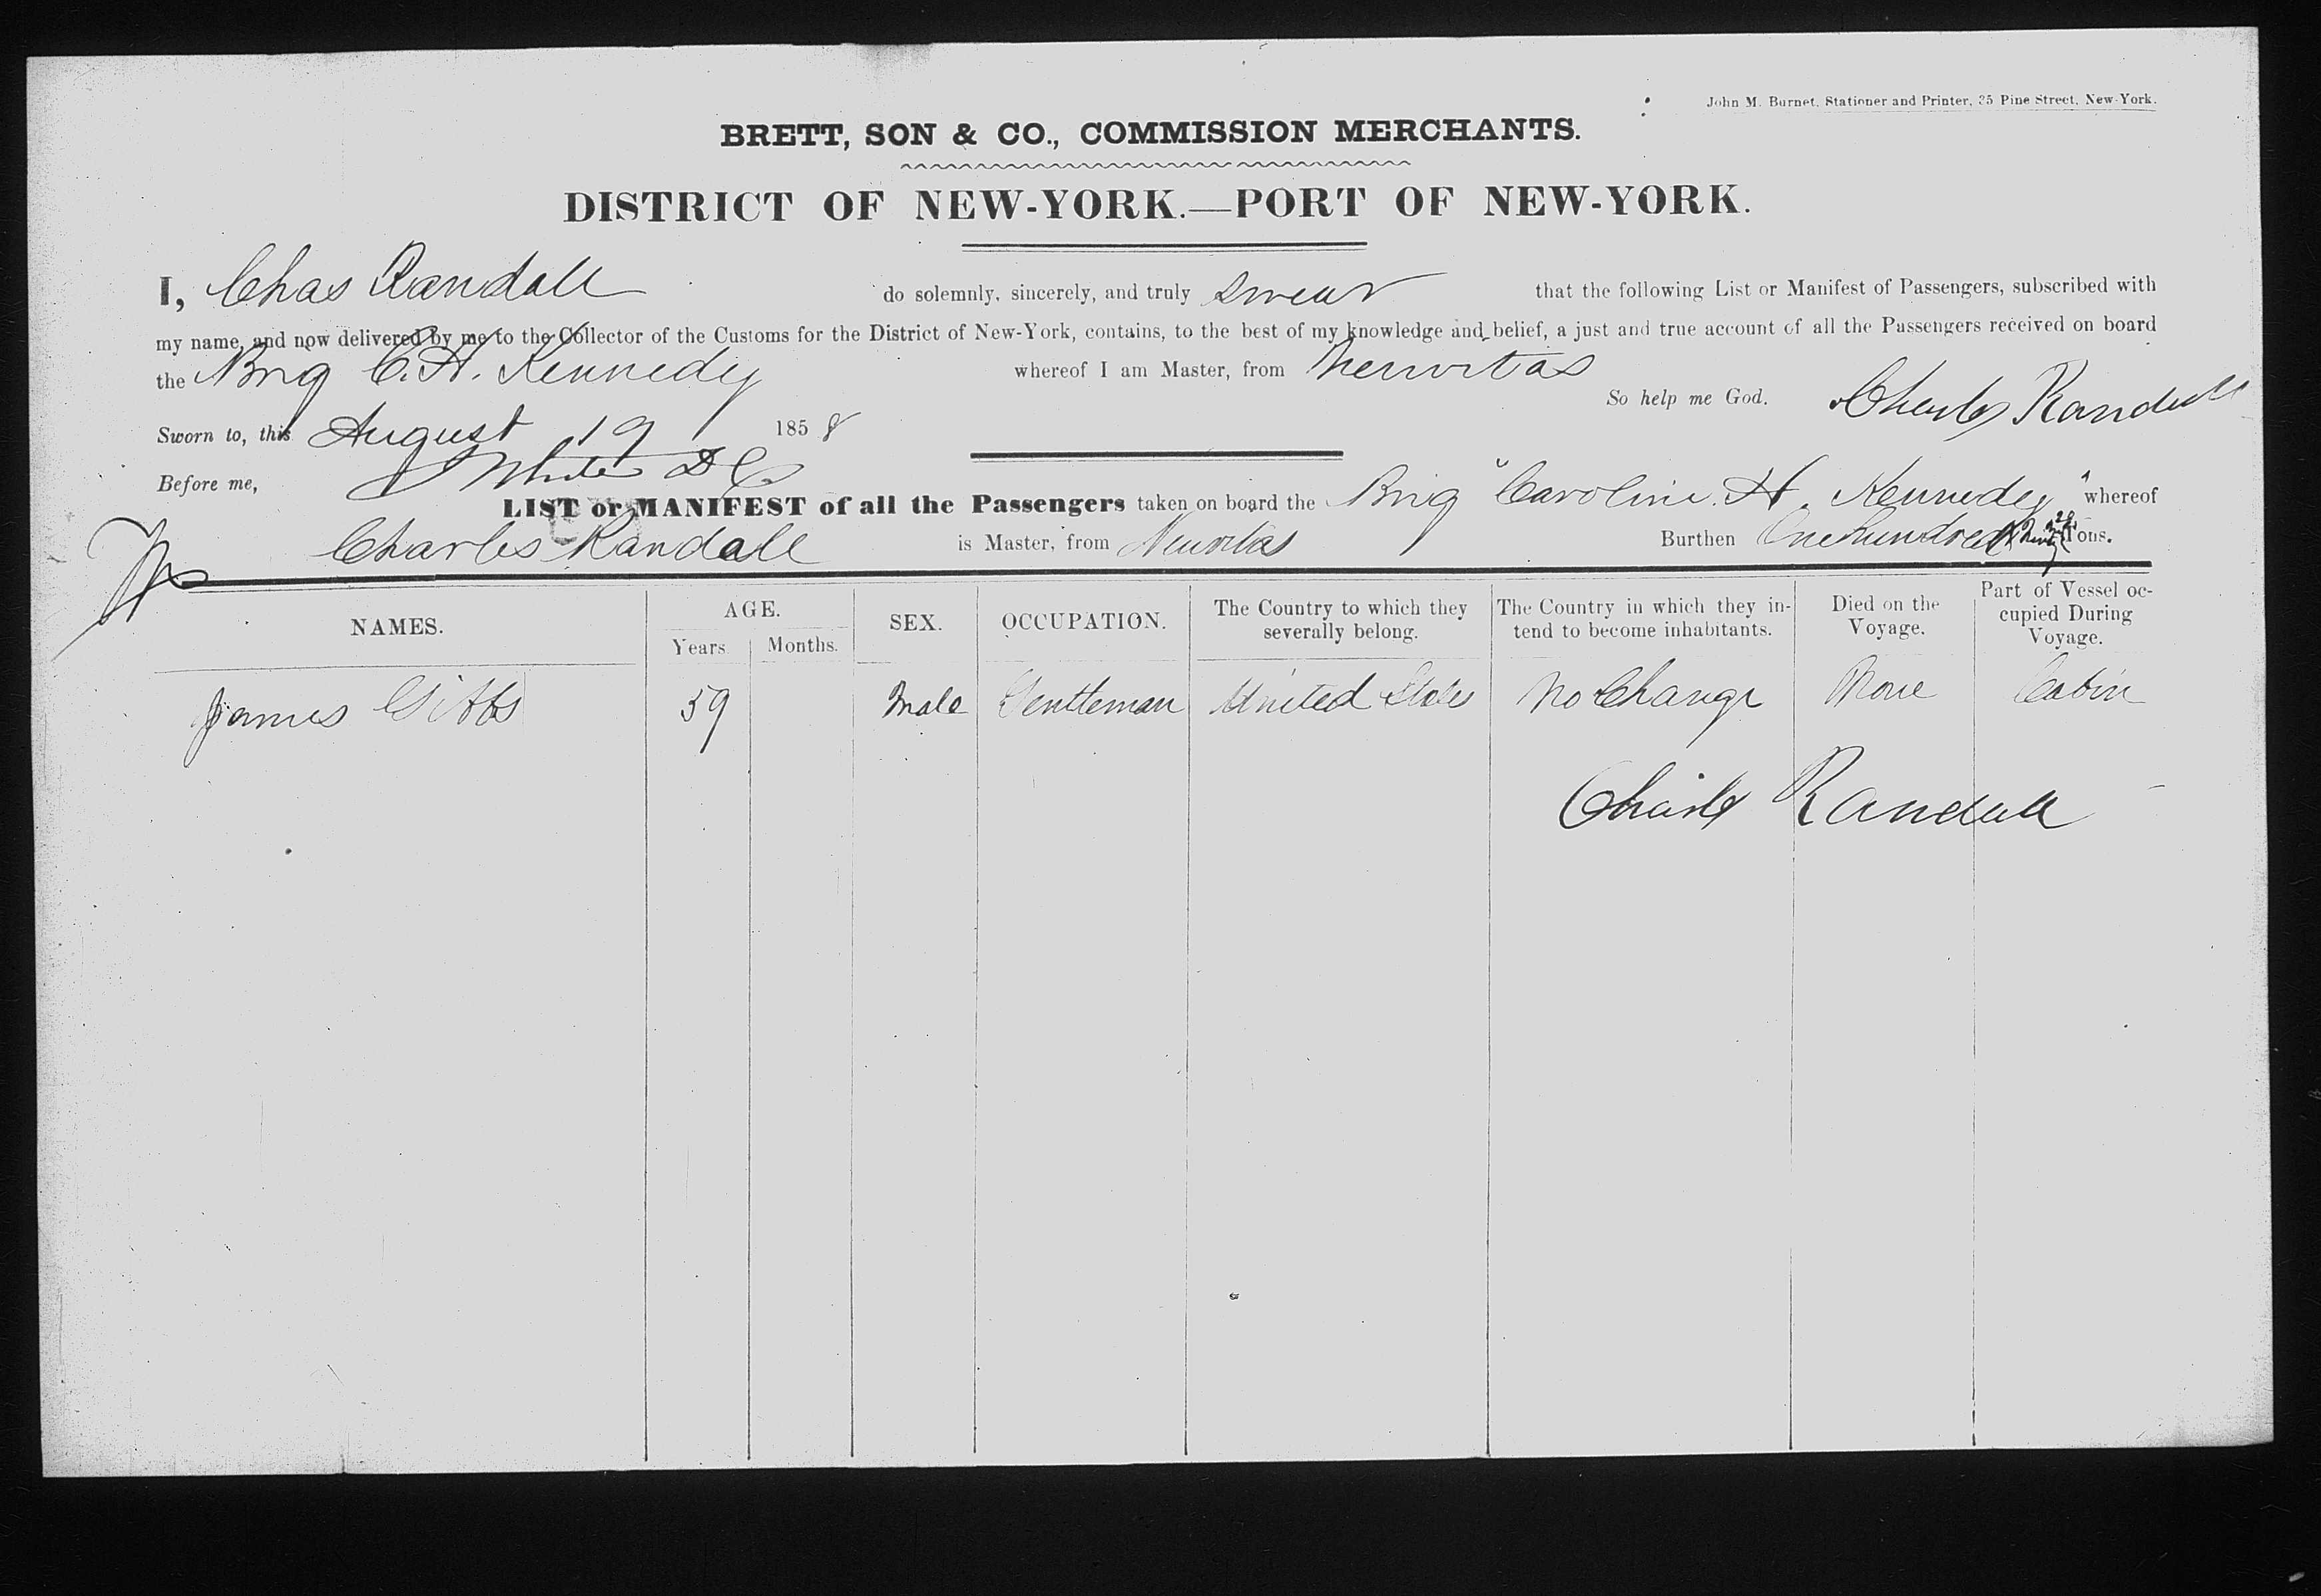 John M. Burnet, Stationer and Printer, 35 Pine Street, New-York.
BRETT, SON & CO., COMMISSION MERCHANTS.
DISTRICT OF NEW-YORK.—PORT OF NEW-YORK.
I, Chas Randall do solemnly, sincerely, and truly swear that the following List or Manifest of Passengers, subscribed with
my name, and now delivered by me to the Collector of the Customs for the District of New-York, contains, to the best of my knowledge and belief, a just and true account of all the Passengers received on board
the Brig C. H. Kennedy whereof I am Master, from Neuvitas
So help me God. Charles Randall
Sworn to, this August 19 1858
Before me, White D C
LIST or MANIFEST of all the Passengers taken on board the Brig "Caroline H. Kennedy" whereof
Charles Randall is Master, from Neuvitas Burthen One hundred & Ninety Tons.
NAMES. AGE. Years. Months. SEX. OCCUPATION. The Country to which they severally belong. The Country in which they intend to become inhabitants. Died on the Voyage. Part of Vessel occupied During Voyage.
James Gibbs 59 Male Gentleman United States No Change None Cabin
Charles Randall